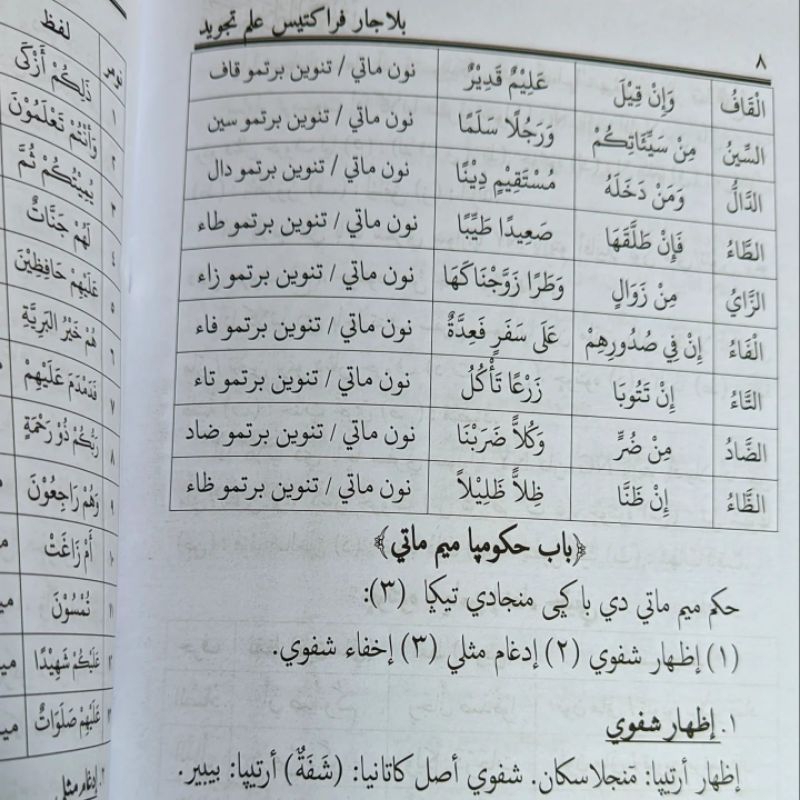 ٨
بلاجار فراكتيس علم تجويد
الْقَافُ وَإِنْ قِيْلَ عَلِيْمٌ قَدِيْرٌ نون ماتي / تنوين برتمو قاف
السِّيْنُ مِنْ سَيِّئَاتِكُمْ وَرَجُلًا سَلَمًا نون ماتي / تنوين برتمو سين
الدَّالُ وَمَنْ دَخَلَهُ مُسْتَقِيْمٍ دِيْنًا نون ماتي / تنوين برتمو دال
الطَّاءُ فَإِنْ طَلَّقَهَا صَعِيْدًا طَيِّبًا نون ماتي / تنوين برتمو طاء
الزَّايُ مِنْ زَوَالٍ وَطَرًا زَوَّجْنَاكَهَا نون ماتي / تنوين برتمو زاء
الْفَاءُ إِنْ فِي صُدُوْرِهِمْ عَلَى سَفَرٍ فَعِدَّةٌ نون ماتي / تنوين برتمو فاء
التَّاءُ إِنْ تَتُوْبَا زَرْعًا تَأْكُلُ نون ماتي / تنوين برتمو تاء
الضَّادُ مِنْ ضُرٍّ وَكُلاًّ ضَرَبْنَا نون ماتي / تنوين برتمو ضاد
الظَّاءُ إِنْ ظَنَّا ظِلاًّ ظَلِيْلاً نون ماتي / تنوين برتمو ظاء
﴿باب حكومڽا ميم ماتي﴾
حكم ميم ماتي دي باڮي منجادي تيڮا (٣):
(١) إظهار شفوي (٢) إدغام مثلي (٣) إخفاء شفوي.
١. إظهار شفوي
إظهار أرتيڽا: منجلاسكان. شفوي أصل كاتاڽا: (شَفَةٌ) أرتيڽا: بيبير.
نومر لفظ
١ ذَلِكُمْ أَزْكَى
٢ وَأَنْتُمْ تَعْلَمُوْنَ
٣ يُمِيْتُكُمْ ثُمَّ
٤ لَهُمْ جَنَّاتٌ
٥ عَلَيْهِمْ حَافِظِيْنَ
٦ هُمْ خَيْرُ الْبَرِيَّةِ
٧ فَدَمْدَمَ عَلَيْهِمْ
٨ رَبُّكُمْ ذُوْ رَحْمَةٍ
٩ وَهُمْ رَاجِعُوْنَ
١٠ أَمْ زَاغَتْ
١١ تُمْسُوْنَ
١٢ عَلَيْكُمْ شَهِيْدًا
١٣ عَلَيْهِمْ صَلَوَاتٌ
٢. إدغام مثلي